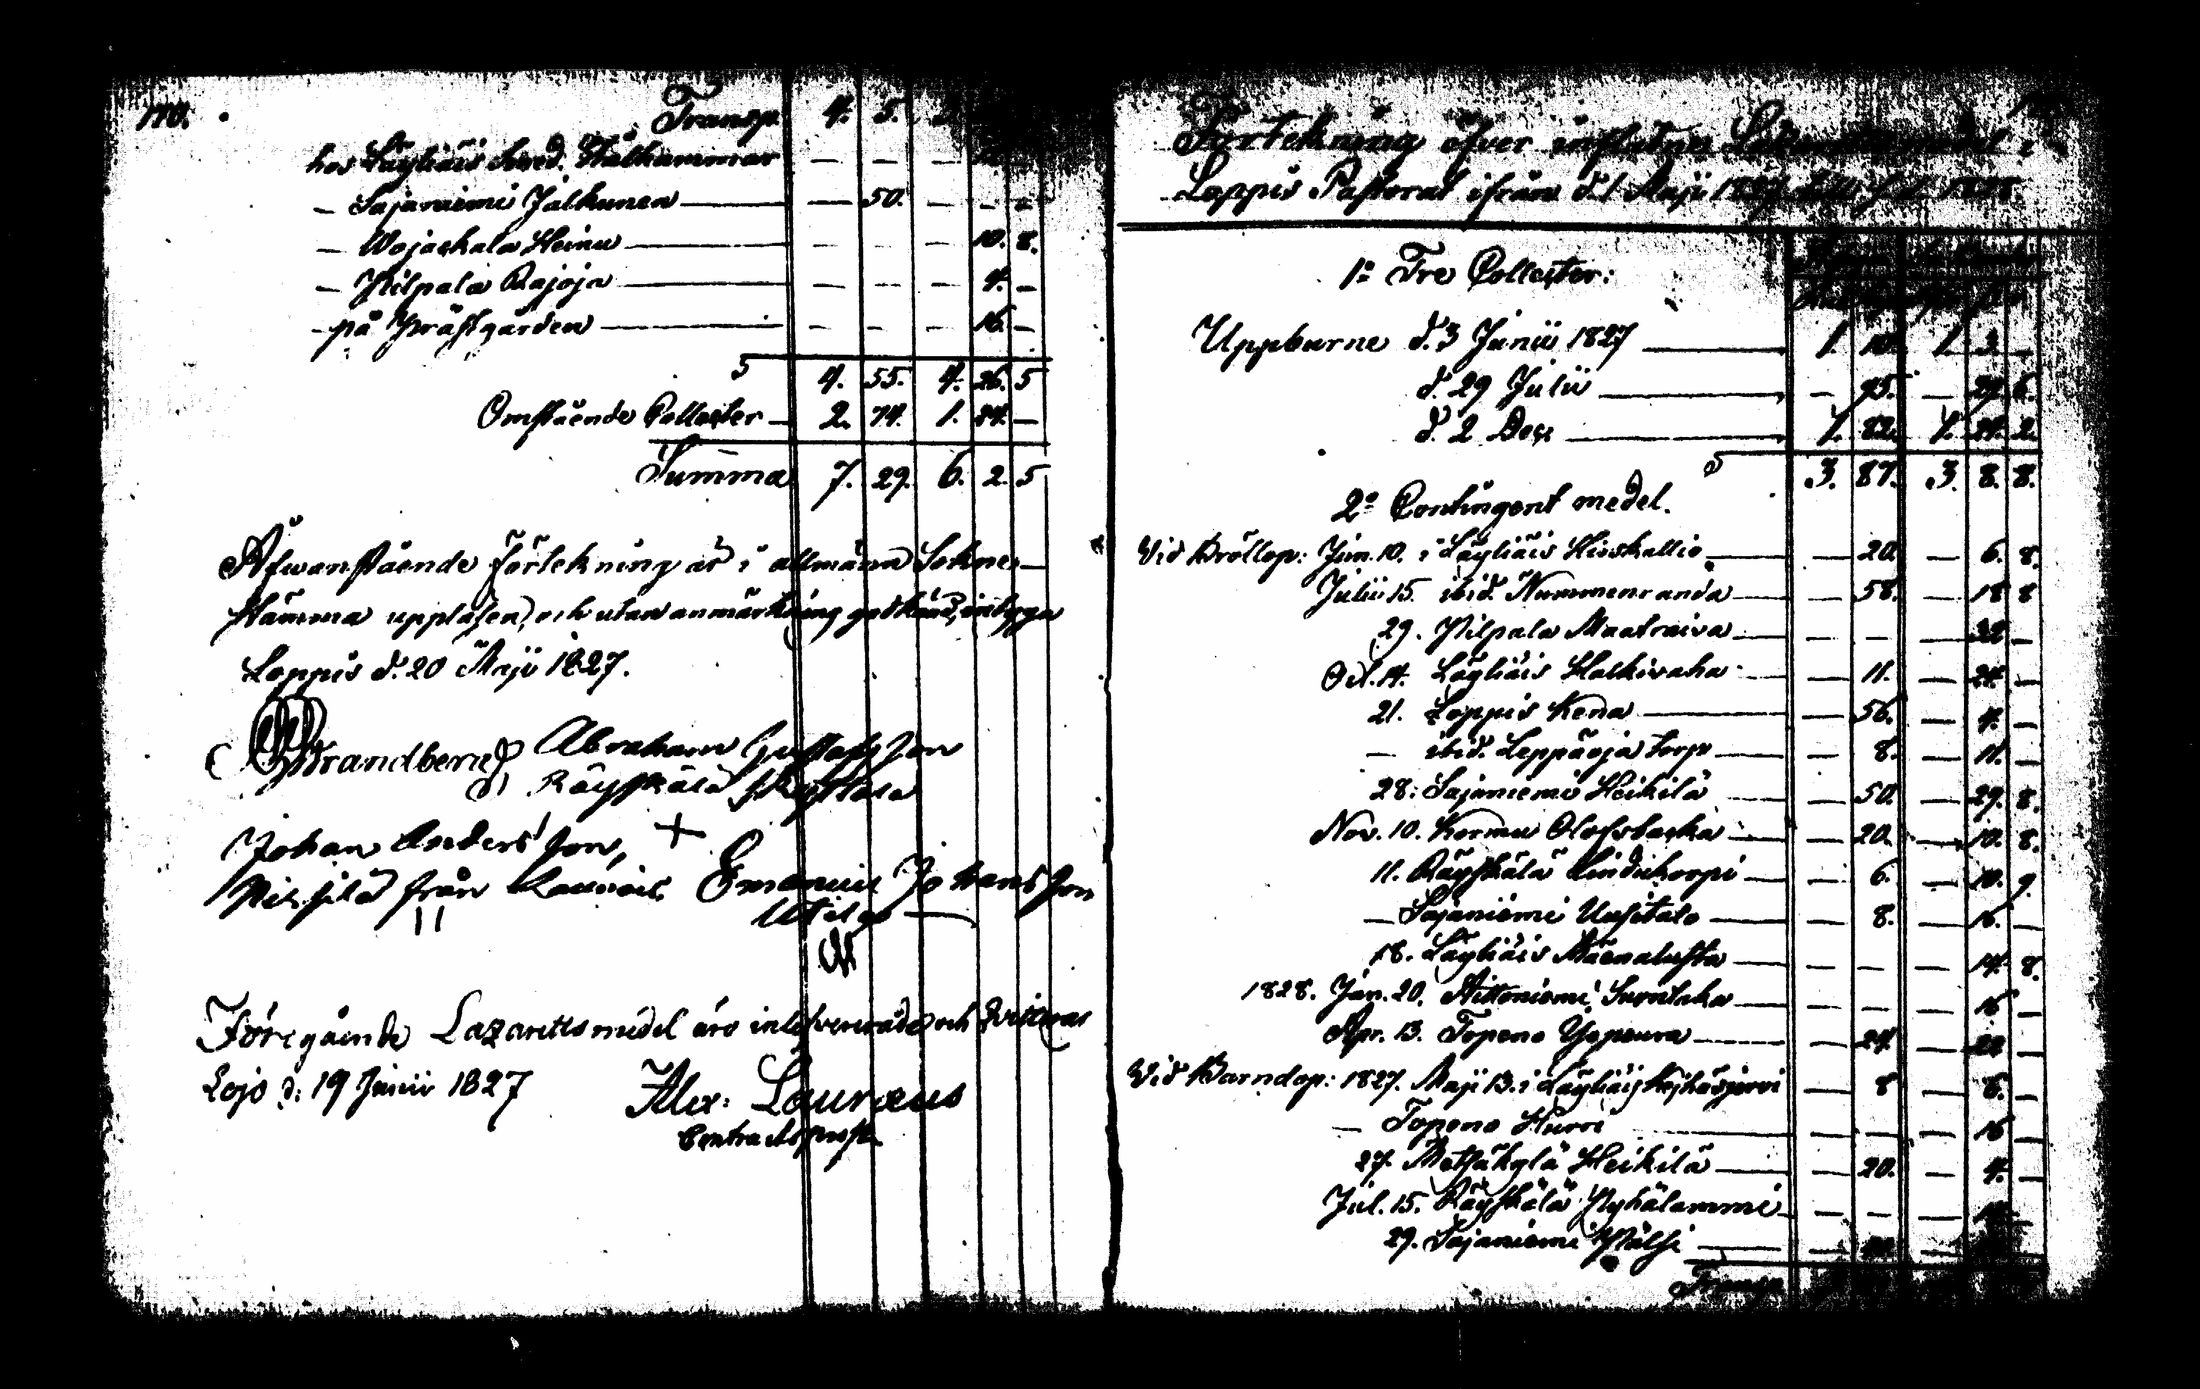 170.
Transp. 4. 5.
hos Läyliäis Smed. Stålhammar — — —
— Sajaniemi Jalkunen — — 50. — — —
— Wojaskala Heinu — — — — 10. 8.
— Pilpala Rajoja — — — — 4. —
— på Prästgården — — — — 16. —
4. 55. 4. 26. 5
Omstående Collecter — 2. 74. 1. 24. —
Summa 7. 29. 6. 2. 5
Afwanstående förtekning är i allmänn Sokne-
stämma uppläsen, och utan anmärkning godkänd, intyga
Loppis d. 20 Maji 1827.
Strandberg Abraham Gustafsson
Räyskälä
Johan Anders son, +
från Emanuel Johansson
Föregående Lazaretts medel äro inlefvererade och qvitteras
Lojo d: 19 Junii 1827
Alex: Lauræus
Contractsprost
Förtekning öfver influtne Lazaretts medel i
Loppis Pastorat ifrån d. 1 Maji 1827 till 1828.
1:o Tre Collecter:
Uppburne d. 3 Junii 1827 — 1. 10. 1. 3. —
d. 29 Julii — — 95. — 29. 6.
d. 2 Dec. — 1. 82. 1. 24. 2.
3. 87. 3. 8. 8.
2:o Contingent medel.
Vid Bröllop: Jun. 10. i Läyliäis Hiiskallio — — 20. — 6. 8.
Julii 15. ibid. Nummenranda — — 58. — 18 8
29. Pilpala Maatraiva — — — — 32 —
Oct. 14. Läyliäis Halkivaha — 11. — 24. —
21. Loppis Kena — — 56. — 4. —
— ibid. Leppäoja torp — — 8. — 11. —
28. Sajaniemi Heikilä — — 50. — 29. 8.
Nov. 10. Kormu Olofsbacka — — 20. — 10. 8.
11. Räyskälä Lindukorpi — — 6. — 10. 9.
— Sajaniemi Uusitalo — — 8. — 16. —
18. Läyliäis Mäenalusta — — — — 14. 8.
1828. Jan. 20. Hittoniemi Suontaka — — — — 16 —
Apr. 13. Topeno Yöpoura — — 24. — 22 —
Vid Barndop: 1827. Maji 13. i Läyliäis Kejhäsjärvi — 8 — 6. —
— Topeno Hurri — — — 16 —
27. Metsäkylä Heikilä — — 20. — 4. —
Jul. 15. Räyskälä Pyhälammi — — —
29. Sajaniemi Pälsi — —
Transp.